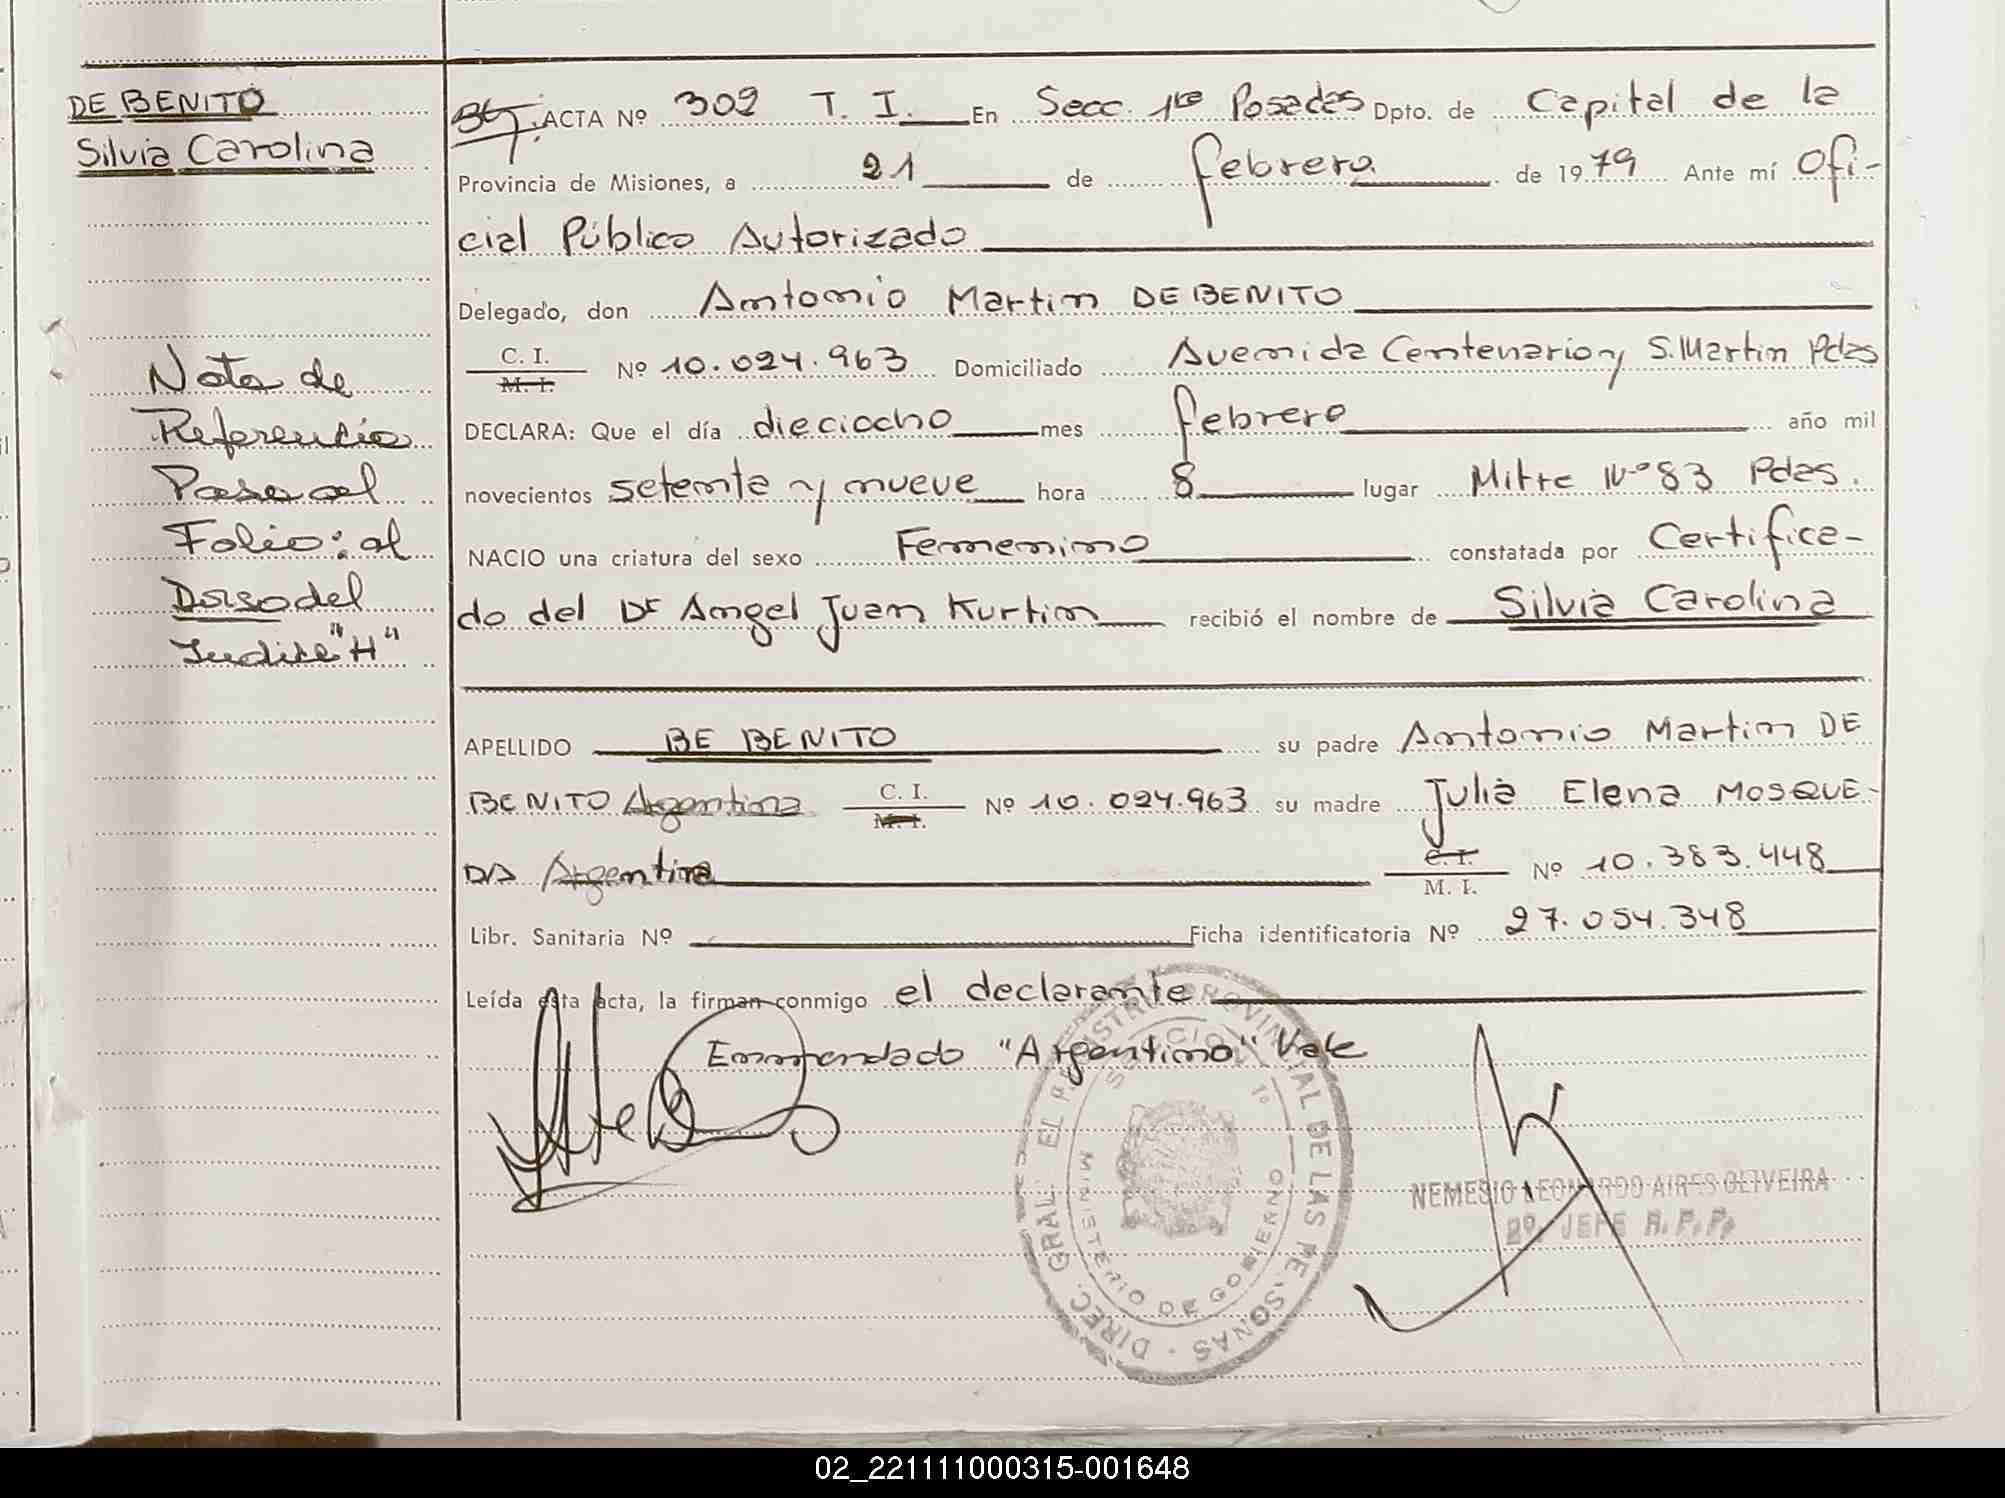 DE BENITO
Silvia Carolina
Nota de
Referencia
Pasa al
Folio: al
Dorso del
Indice "H"
ACTA Nº 302 T. I. En Secc. 1ra Posadas Dpto. de Capital de la
Provincia de Misiones, a 21 de febrero de 1979 Ante mí Ofi-
cial Público Autorizado
Delegado, don Antonio Martin DE BENITO
C. I.
M. I.
Nº 10.024.963 Domiciliado Avenida Centenario y S. Martin Pdas
DECLARA: Que el día dieciocho mes febrero año mil
novecientos setenta y nueve hora 8 lugar Mitre Nº 83 Pdas.
NACIO una criatura del sexo Femenino constatada por Certifica-
do del Dr Angel Juan Kurtin recibió el nombre de Silvia Carolina
APELLIDO BE BENITO su padre Antonio Martin DE
BENITO Argentina C. I. Nº 10.024.963 su madre Julia Elena MOSQUE-
M. I.
DA Argentina C. I. Nº 10.383.448
M. I.
Libr. Sanitaria Nº Ficha identificatoria Nº 27.054.348
Leída esta acta, la firman conmigo el declarante
Enmendado "Argentino" Vale
DIREC. GRAL. EL REGISTRO PROVINCIAL DE LAS PERSONAS
SECCION 1º
MINISTERIO DE GOBIERNO
NEMESIO LEONARDO AIRES OLIVEIRA
2º JEFE R. P. P.
02_221111000315-001648